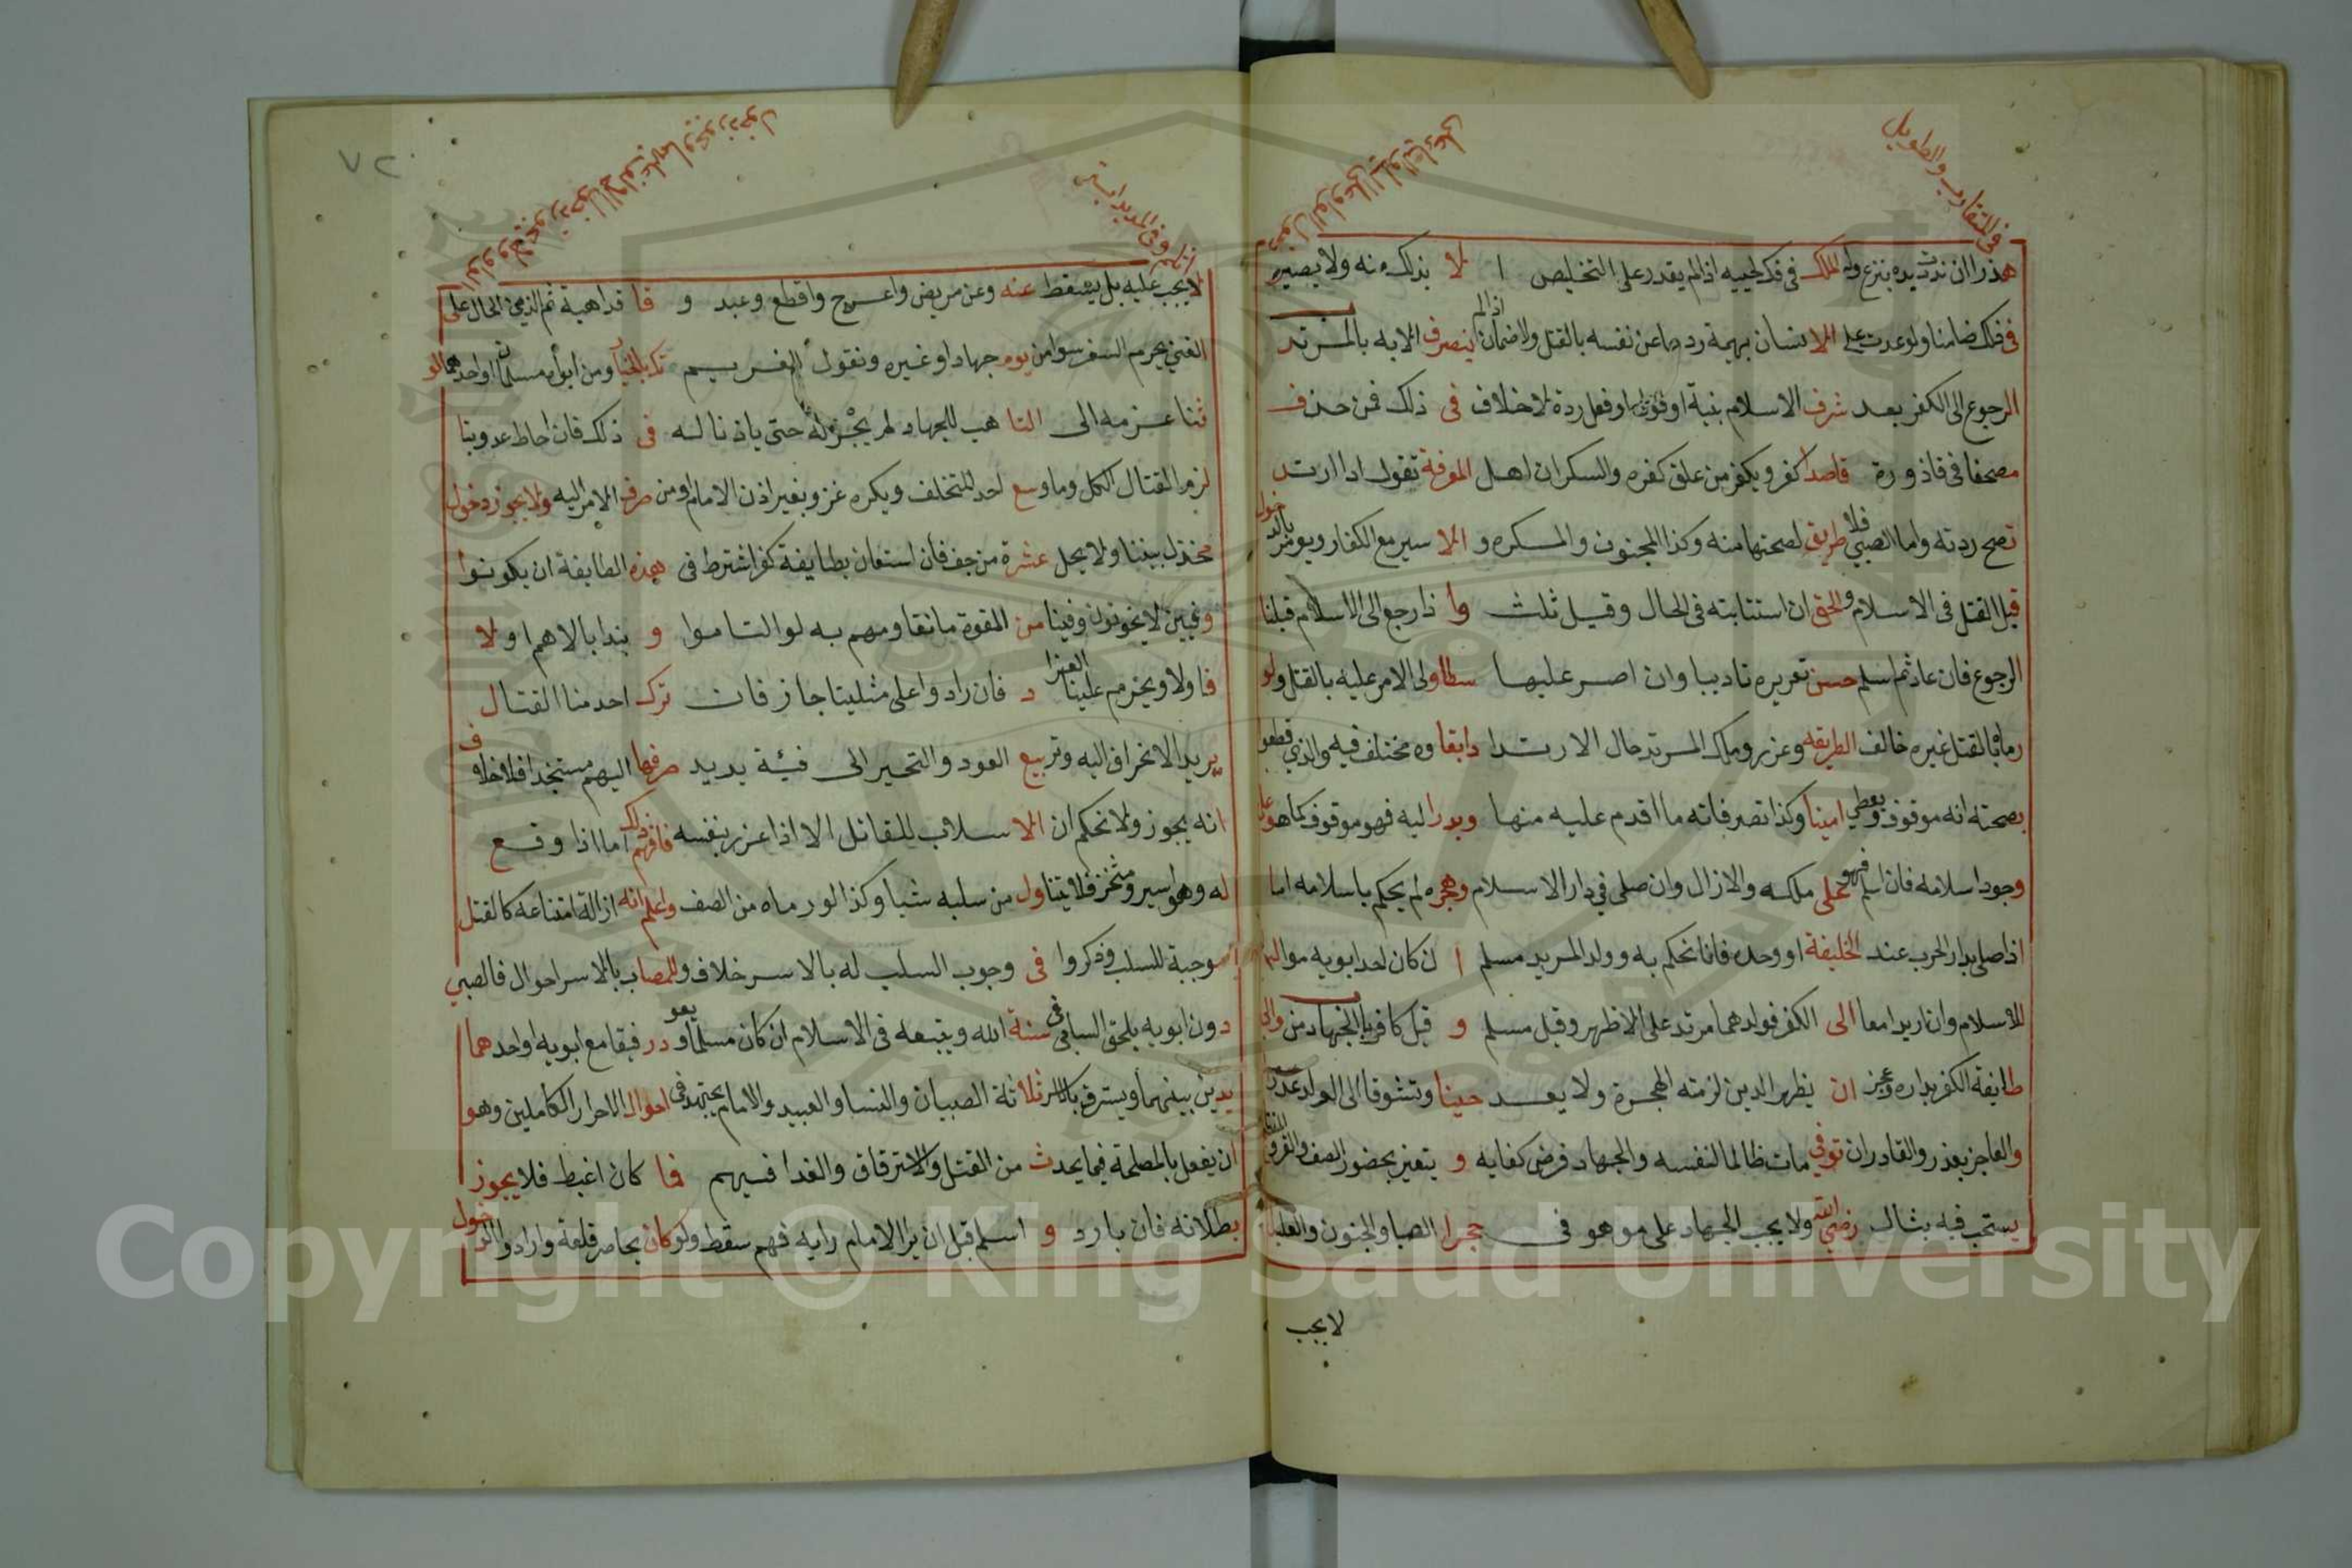 في المتقارب والطويل
هذرا ان ندت يده بنزع وله الملك في فك لحييه اذا لم يقدر على التخليص ا لا بذلك منه ولا يصيره
في فلك ضامنا ولو عدت على الانسان بهيمة ردها عن نفسه بالقتل ولا ضمان اذا لم ينصرف الا به بالمرتد
الرجوع الى الكفر بعد شرف الاسلام بنية او قول او فعل ردة لا خلاف في ذلك فمن حذف
مصحفا في قاذورة قاصدا كفر ويكفر من علق كفره والسكران اهل المعرفة تقول اذا ارتد
تصح ردته واما الصبي فلا طريق لصحتها منه وكذا المجنون والمكره و الاسير مع الكفار ويومر بالدخول
قبل القتل في الاسلام والحق ان استتابته في الحال وقيل ثلث وا ذا رجع الى الاسلام قبلنا
الرجوع فان عاد ثم اسلم حسن تعزيره تاديبا وان اصر عليها سطا ولي الامر عليه بالقتل ولو
رماه بالقتل غيره خالف الطريقه وعزر وملك المرتد حال الارتدا دابقا وه مختلف فيه والذي قطعوا
بصحته انه موقوف ويعطي امينا وكذا تصرفاته ما اقدم عليه منها وبدرا ليه فهو موقوف كما هو على
وجود اسلامه فان اسلم فهو على ملكه والا زال وان صلى في دار الاسلام وهجره لم يحكم باسلامه اما
اذا صلى بدار الحرب عند الخليفة او وحده فانا نحكم به وولد المريد مسلم ا ن كان احد ابويه موالد
للاسلام وان ارتدا معا الى الكفر فولدهما مرتد على الاظهر وقيل مسلم و قيل كافر باب الجهاد من والى
طايفة الكفر بداره وعجز ان يظهر الدين لزمته الهجرة ولا يعد حينا وتشوقا الى الولد عذر
والعاجز يعذر والقادر ان توفي مات ظالما لنفسه والجهاد فرض كفايه و يتعين بحضور الصف والفرو
يستحب فيه بثال رضي الله ولا يجب الجهاد على من هو في حجرا لصبا والجنون والعليا
لا يجب
٧٢
لا يجب عليه بل يسقط عنه وعن مريض واعرج واقطع وعبد و فا قد اهبة ثم الذي الحال على
الغني يحرم السفر سوا من يوم جهاد او غيره ونقول الغريم ومن ابواه مسلمان او احدهما لو
ثنا عزمه الى التا هب للجهاد لم يجز له حتى ياذنا له في ذلك فان احاط عدو بنا
لزم القتال الكل وما وسع احد التخلف ويكره غزو بغير اذن الامام او من صرف الامر اليه ولا يجوز دخول
مخذل بيننا ولا يحل عشرة من جف فان استعان بطايفة كفر اشترط في هذه الطايفة ان يكونوا
وفيين لا يخونون وفينا من القوة ما نقاومهم به لو التاموا و بندا بالاهم او لا
فا ولا ويحرم علينا الفرا د فان زادوا على مثلينا جاز فان ترك احد منا القتال
يريد الانحراف اليه وتربيع العود والتحيز الى فئة يريد صرفها اليهم مستنجدا فلا خلاف
انه يجوز ولا نحكم ان الاسلاب للقاتل الا اذا غرر بنفسه فافهم ذلك اما اذا وقع
له وهو اسير ومثخن فلا يتناول من سلبه شيا وكذا لو رماه من الصف واعلم انه ازالة امتناعه كالقتل
موجبة للسلب وذكروا في وجوب السلب له بالاسر خلاف وللمصاب بالاسر احوال فالصبي
دون ابويه يلحق السابي في سنة الله ويتبعه في الاسلام ان كان مسلما ويعو در فيقا مع ابويه او احدهما
يدين بينهما ويسترق بالاسر ثلاثة الصبيان والنسا والعبيد والامام يجتهد في احوال الاحرار الكاملين وهو
ان يفعل بالمصلحة فيما يحدث من القتل والاسترقاق والفدا فيهم فا كان اغبط فلا يجوز
بطلانه فان بارد و اسلم قبل ان يرا الامام رايه فهم سقط ولو كان يحاصر قلعة وارادوا الدخول
Copyright © King Saud University